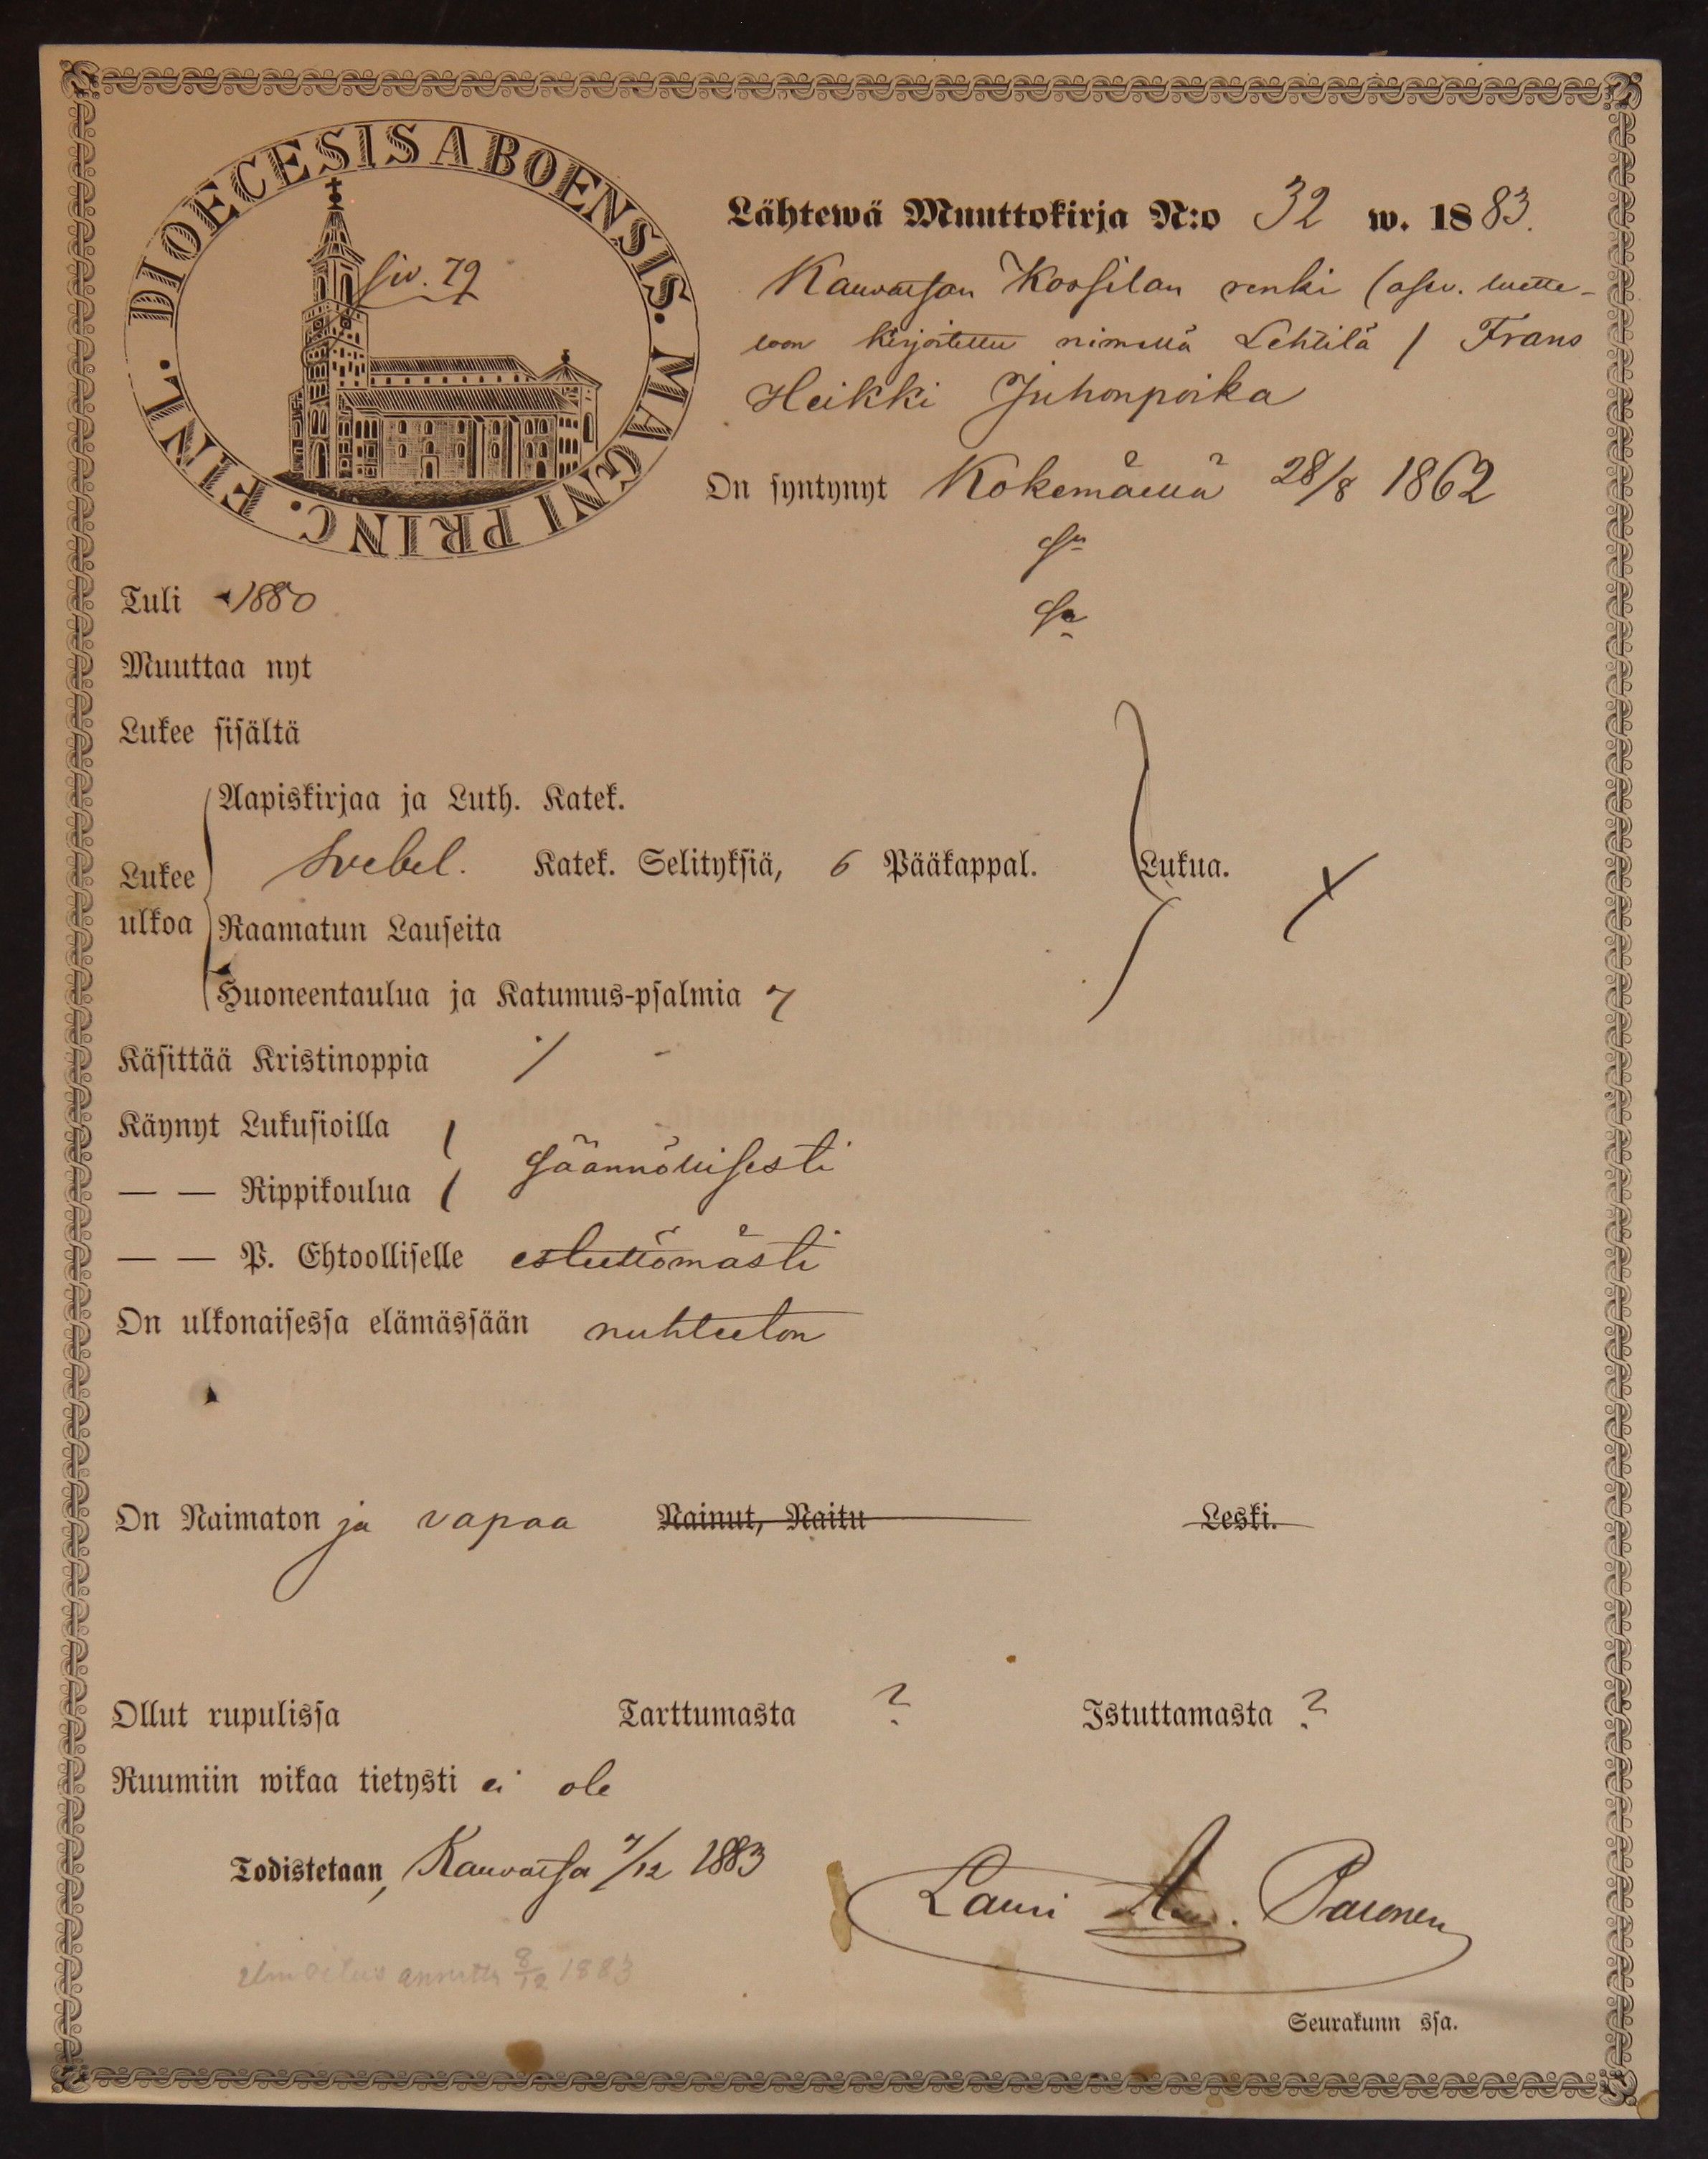 DIOECESIS ABOENSIS. MAGNI PRINC. FINL.
siv. 79
Lähtewä Muuttokirja N:o 32 w. 1883.
Kauvatsan Koosilan renki (asev. luette-
loon kirjoitettu nimellä Lehtilä / Frans
Heikki Juhonpoika
On syntynyt Kokemäellä 28/8 1862
Tuli 1880
Muuttaa nyt
Lukee sisältä
Aapiskirjaa ja Luth. Katek.
Lukee Svebel. Katek. Selityksiä, 6 Pääkappal. Lukua.
ulkoa Raamatun Lauseita
Huoneentaulua ja Katumus-psalmia 7
Käsittää Kristinoppia /
Käynyt Lukusioilla
säännöllisesti
— — Rippikoulua
— — P. Ehtoolliselle esteettömästi
On ulkonaisessa elämässään nuhteeton
On Naimaton ja vapaa Nainut, Naitu Leski.
Ollut rupulissa Tarttumasta ? Istuttamasta ?
Ruumiin wikaa tietysti ei ole
Todistetaan, Kauvatsa 7/12 1883
Lauri Paronen
Ilmoitus annettu 8/12 1883
Seurakunn ssa.